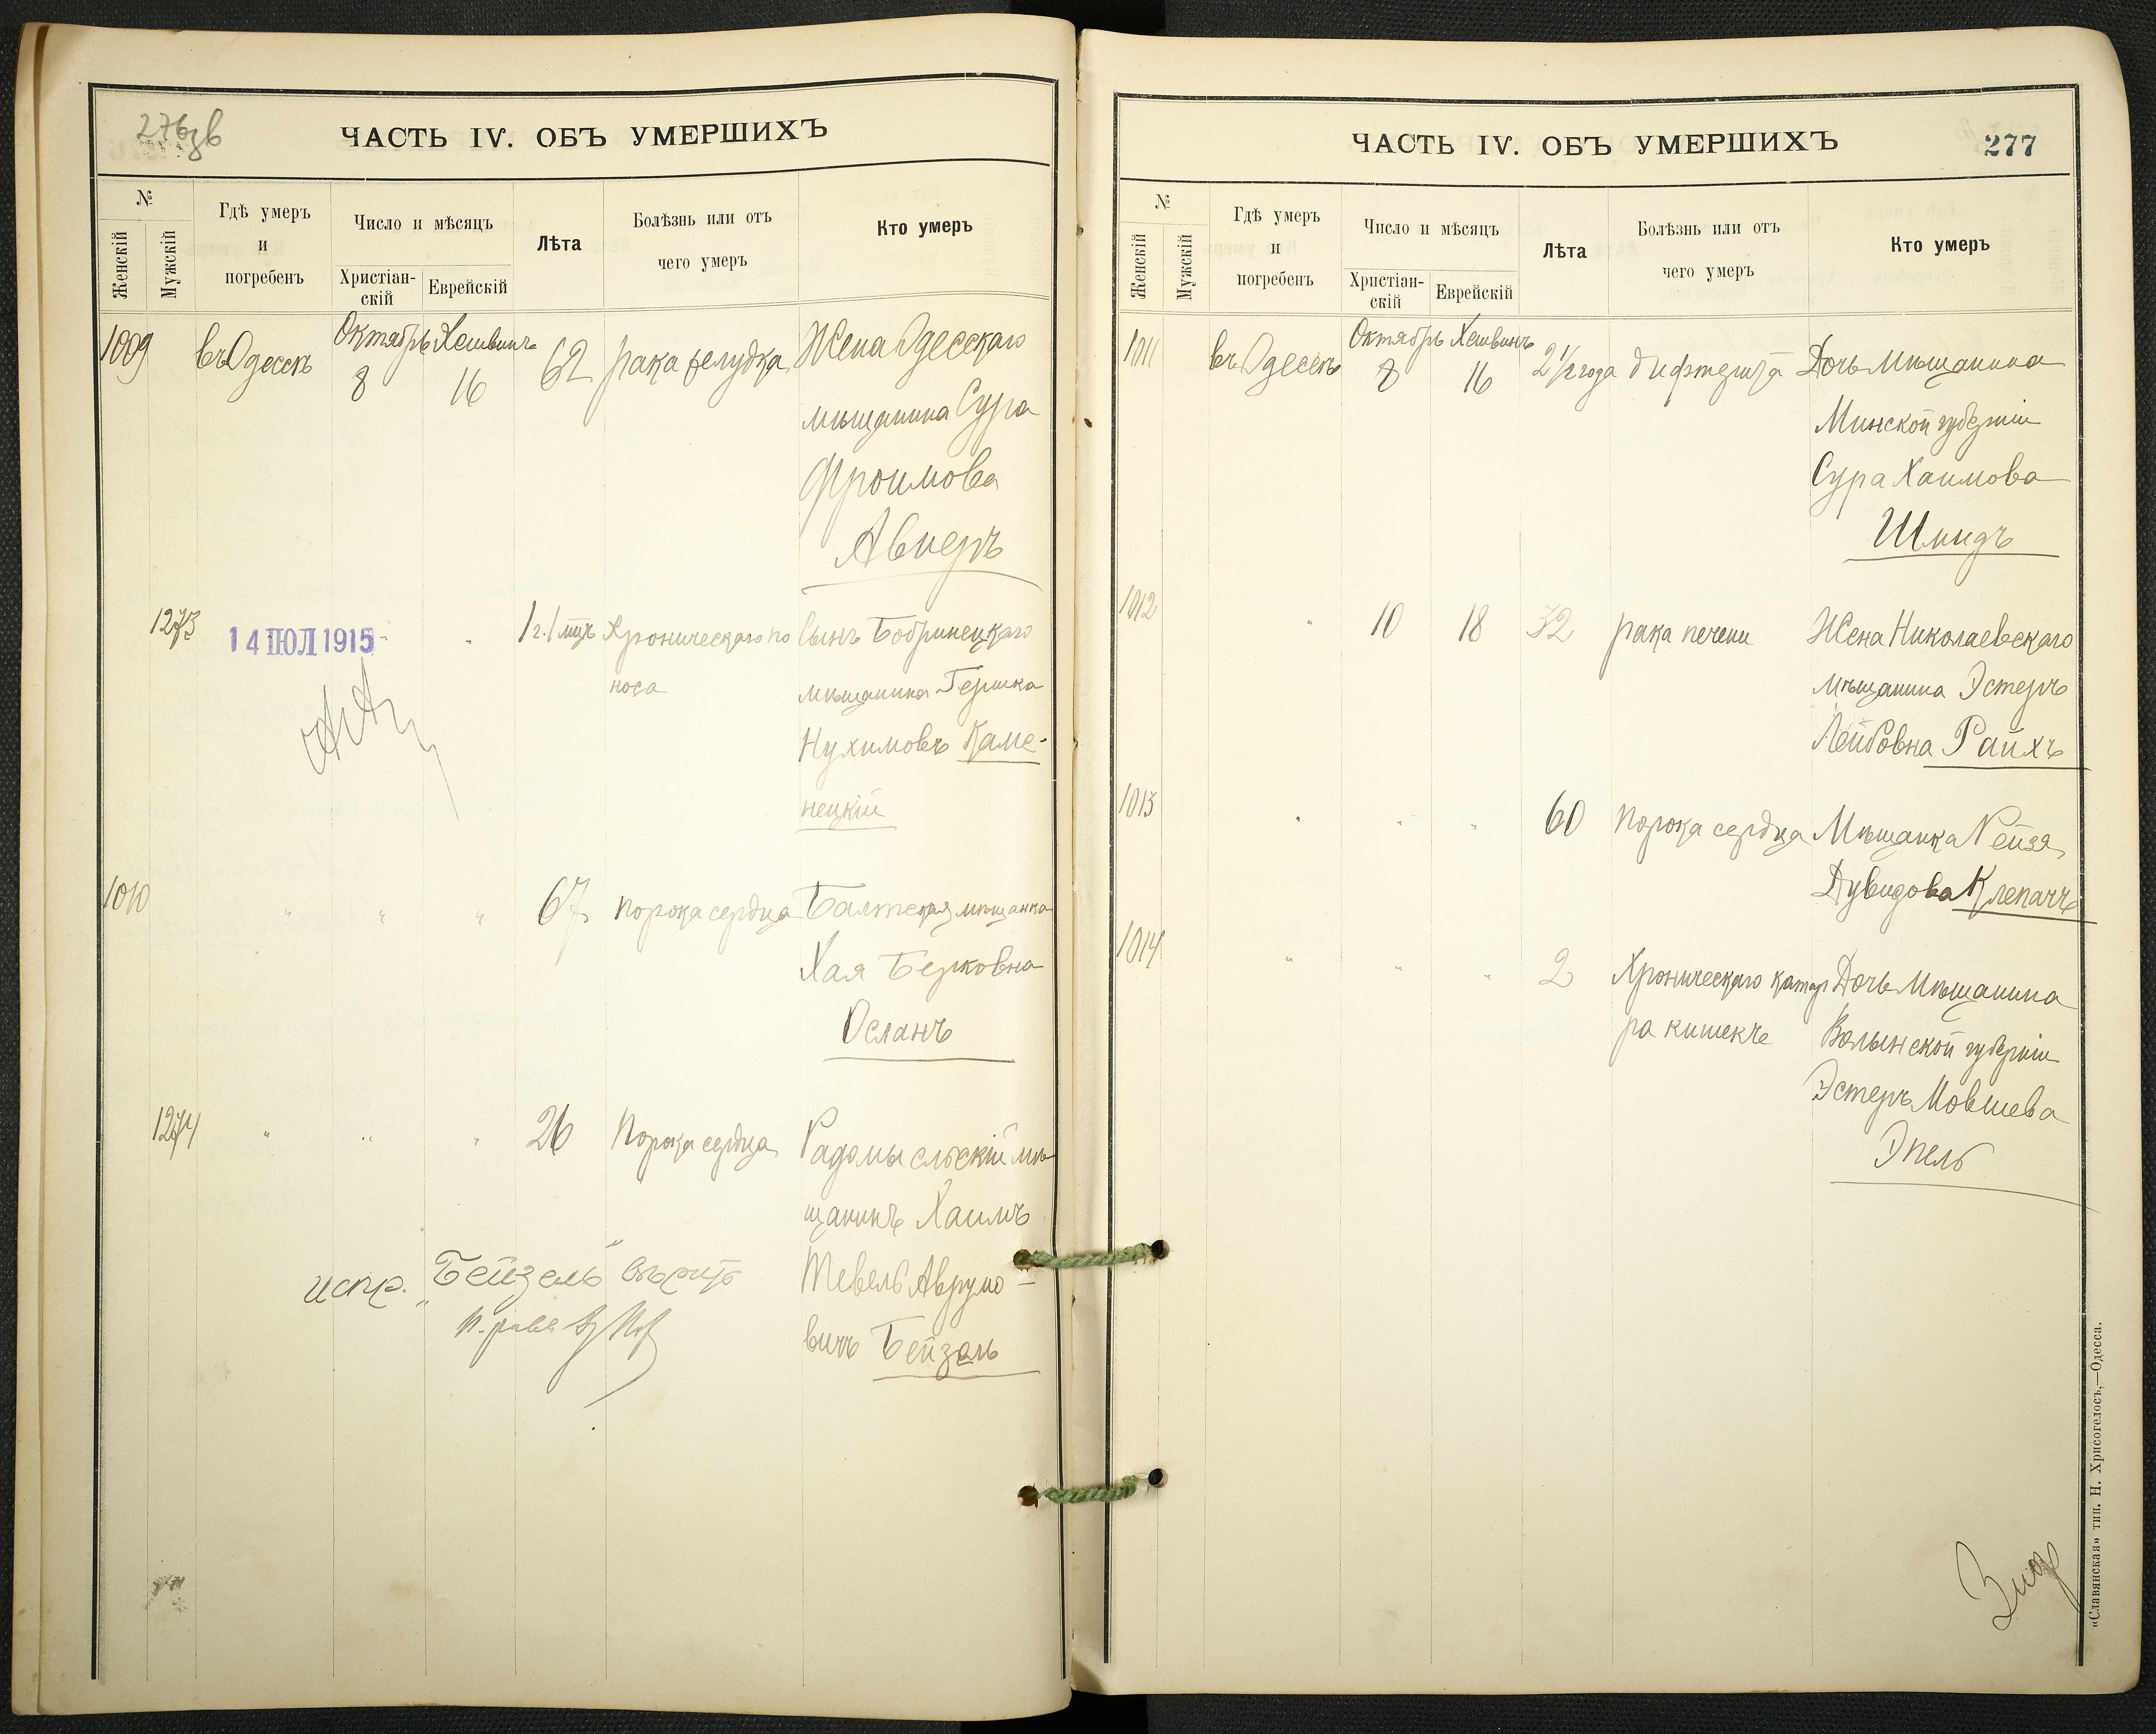 276 об
ЧАСТЬ IV. ОБЪ УМЕРШИХЪ
№
Женскій
Мужскій
Гдѣ умеръ
и
погребенъ
Число и мѣсяцъ
Христіан-
скій
Еврейскій
Лѣта
Болѣзнь или отъ
чего умеръ
Кто умеръ
1009 въ Одессѣ Октябрь 8 Хешвинъ 16 62 рака желудка Жена Одесскаго
мѣщанина Сура
Фроимова
Авнеръ
1273 14 ІЮЛ 1915 " 1 г. 1 мцъ Хроническаго по Сынъ Бобринецкаго
носа мѣщанина Гершка
Нухимовъ Каме-
нецкій
1010 " " " 67 порока сердца Балтская мѣщанка
Хая Берковна
Осланъ
1274 " " " 26 порока сердца Радомысльскій мѣ
щанинъ Хаимъ
Тевель Аврумо-
вичъ Бейзель
испр. "Бейзель" вѣрить
ЧАСТЬ IV. ОБЪ УМЕРШИХЪ
277
№
Женскій
Мужскій
Гдѣ умеръ
и
погребенъ
Число и мѣсяцъ
Христіан-
скій
Еврейскій
Лѣта
Болѣзнь или отъ
чего умеръ
Кто умеръ
1011 въ Одессѣ Октябрь 8 Хешвинъ 16 2 1/2 года дифтерита Дочь мѣщанина
Минской губерніи
Сура Хаимова
Шмидъ
1012 " 10 18 32 рака печени Жена Николаевскаго
мѣщанина Эстеръ
Лейбовна Райхъ
1013 " " " 60 порока сердца Мѣщанка Рейзя
Дувидова Клепачъ
1014 " " " 2 Хроническаго катар Дочь мѣщанина
ра кишекъ Волынской губерніи
Эстеръ Мовшева
Эпель
«Славянская» тип. Н. Хрисогелосъ,—Одесса.